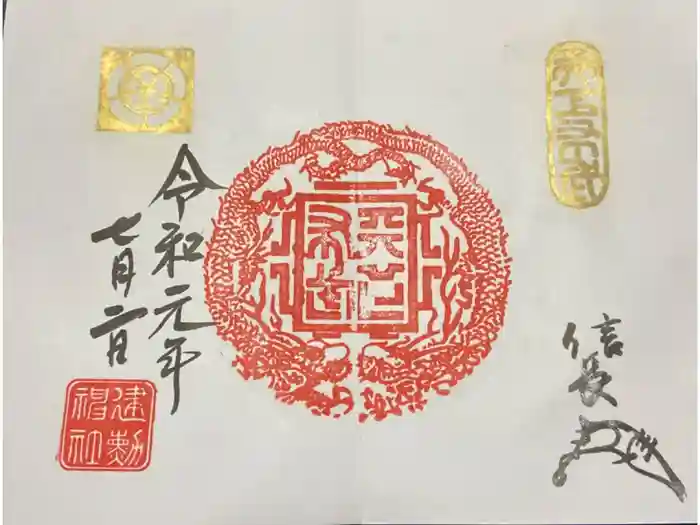 信長
天下
布武
令和元年
七月二日
建勲
神社